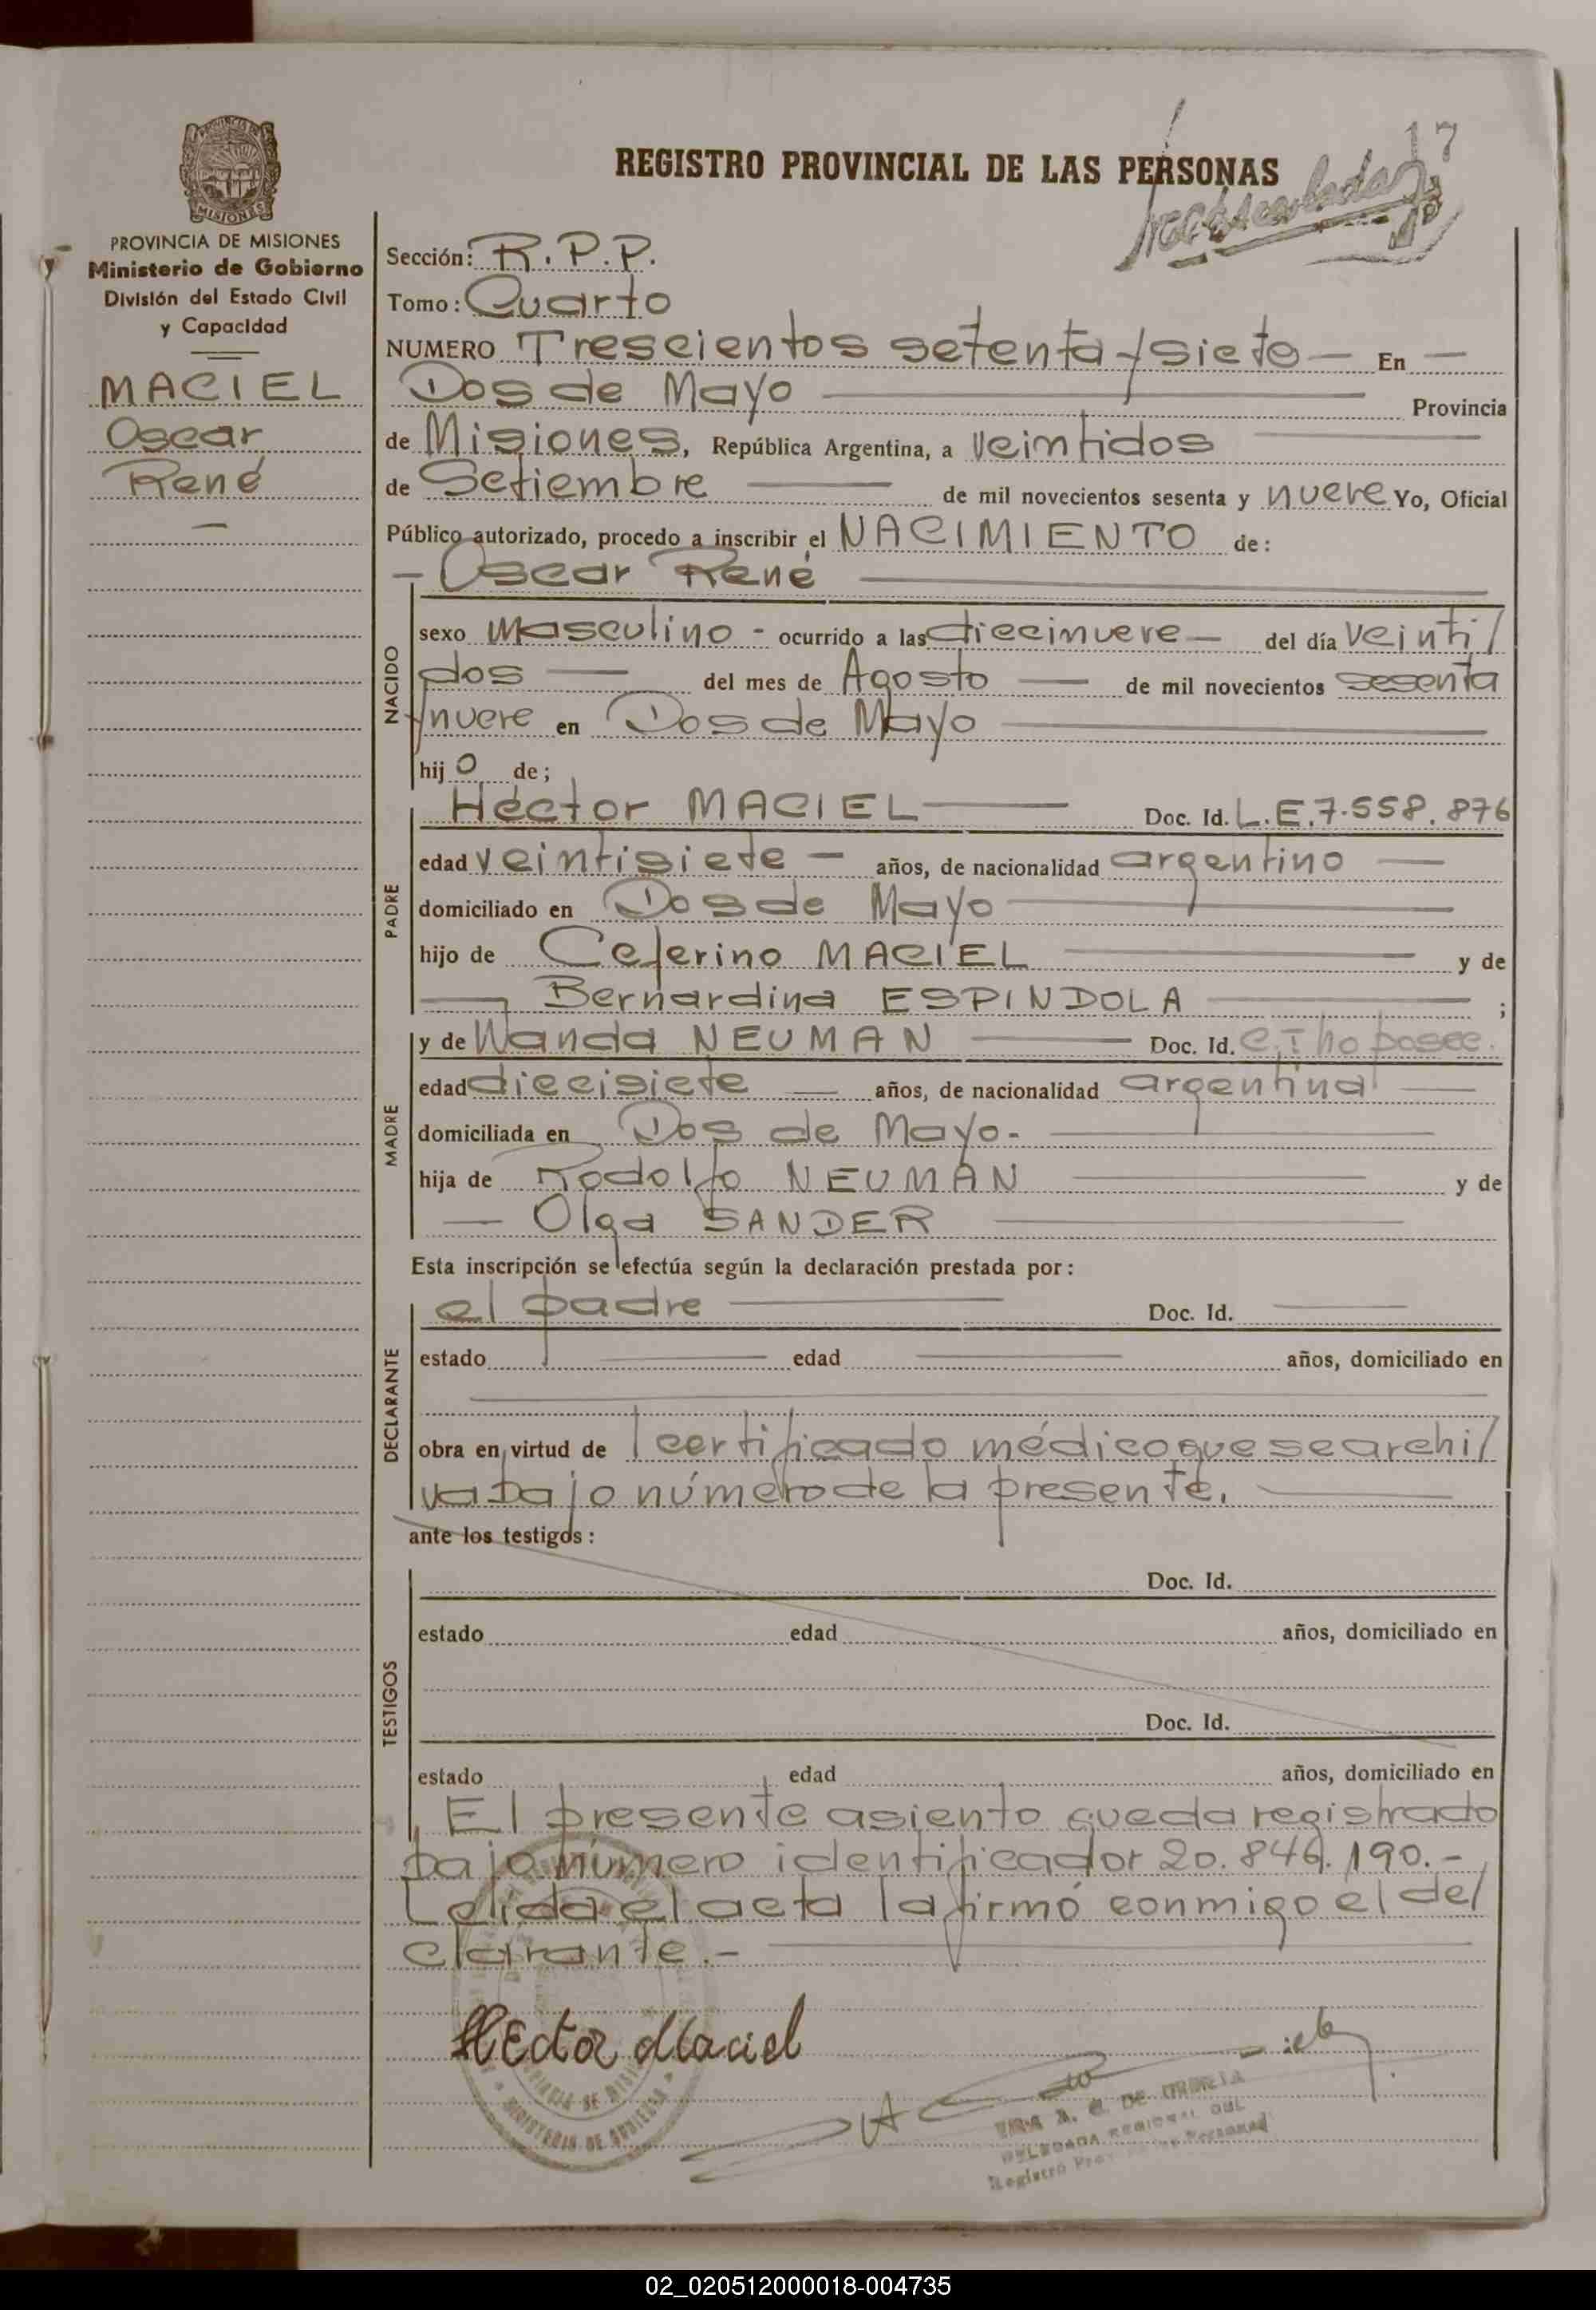 17
REGISTRO PROVINCIAL DE LAS PERSONAS
PROVINCIA DE MISIONES
Ministerio de Gobierno
División del Estado Civil
y Capacidad
MACIEL
Oscar
René
Sección: R.P.P.
Tomo: Cuarto
NUMERO Trescientos setenta y siete — En —
Dos de Mayo — Provincia
de Misiones, República Argentina, a veintidos
de Setiembre — de mil novecientos sesenta y nueve Yo, Oficial
Público autorizado, procedo a inscribir el NACIMIENTO de:
— Oscar René —
NACIDO
sexo masculino - ocurrido a las diecinueve — del día veinti/
dos — del mes de Agosto — de mil novecientos sesenta
y nueve en Dos de Mayo —
hij o de;
PADRE
Héctor MACIEL — Doc. Id. L.E.7.558.876
edad veintisiete — años, de nacionalidad argentino —
domiciliado en Dos de Mayo —
hijo de Ceferino MACIEL — y de
— Bernardina ESPINDOLA — ;
MADRE
y de Wanda NEUMAN — Doc. Id. C.I no posee.
edad diecisiete — años, de nacionalidad argentina —
domiciliada en Dos de Mayo. —
hija de Rodolfo NEUMAN — y de
— Olga SANDER —
Esta inscripción se efectúa según la declaración prestada por:
DECLARANTE
el padre — Doc. Id. —
estado — edad — años, domiciliado en
obra en virtud de l certificado médico que se archi/
va bajo número de la presente. —
ante los testigos:
TESTIGOS
Doc. Id.
estado edad años, domiciliado en
Doc. Id.
estado edad años, domiciliado en
El presente asiento queda registrado
bajo número identificador 20.846.190.-
Leída el acta la firmó conmigo el de/
clarante.- —
Hector Maciel
DE
DELEGADA REGIONAL DEL
Registro
MINISTERIO DE GOBIERNO
02_020512000018-004735